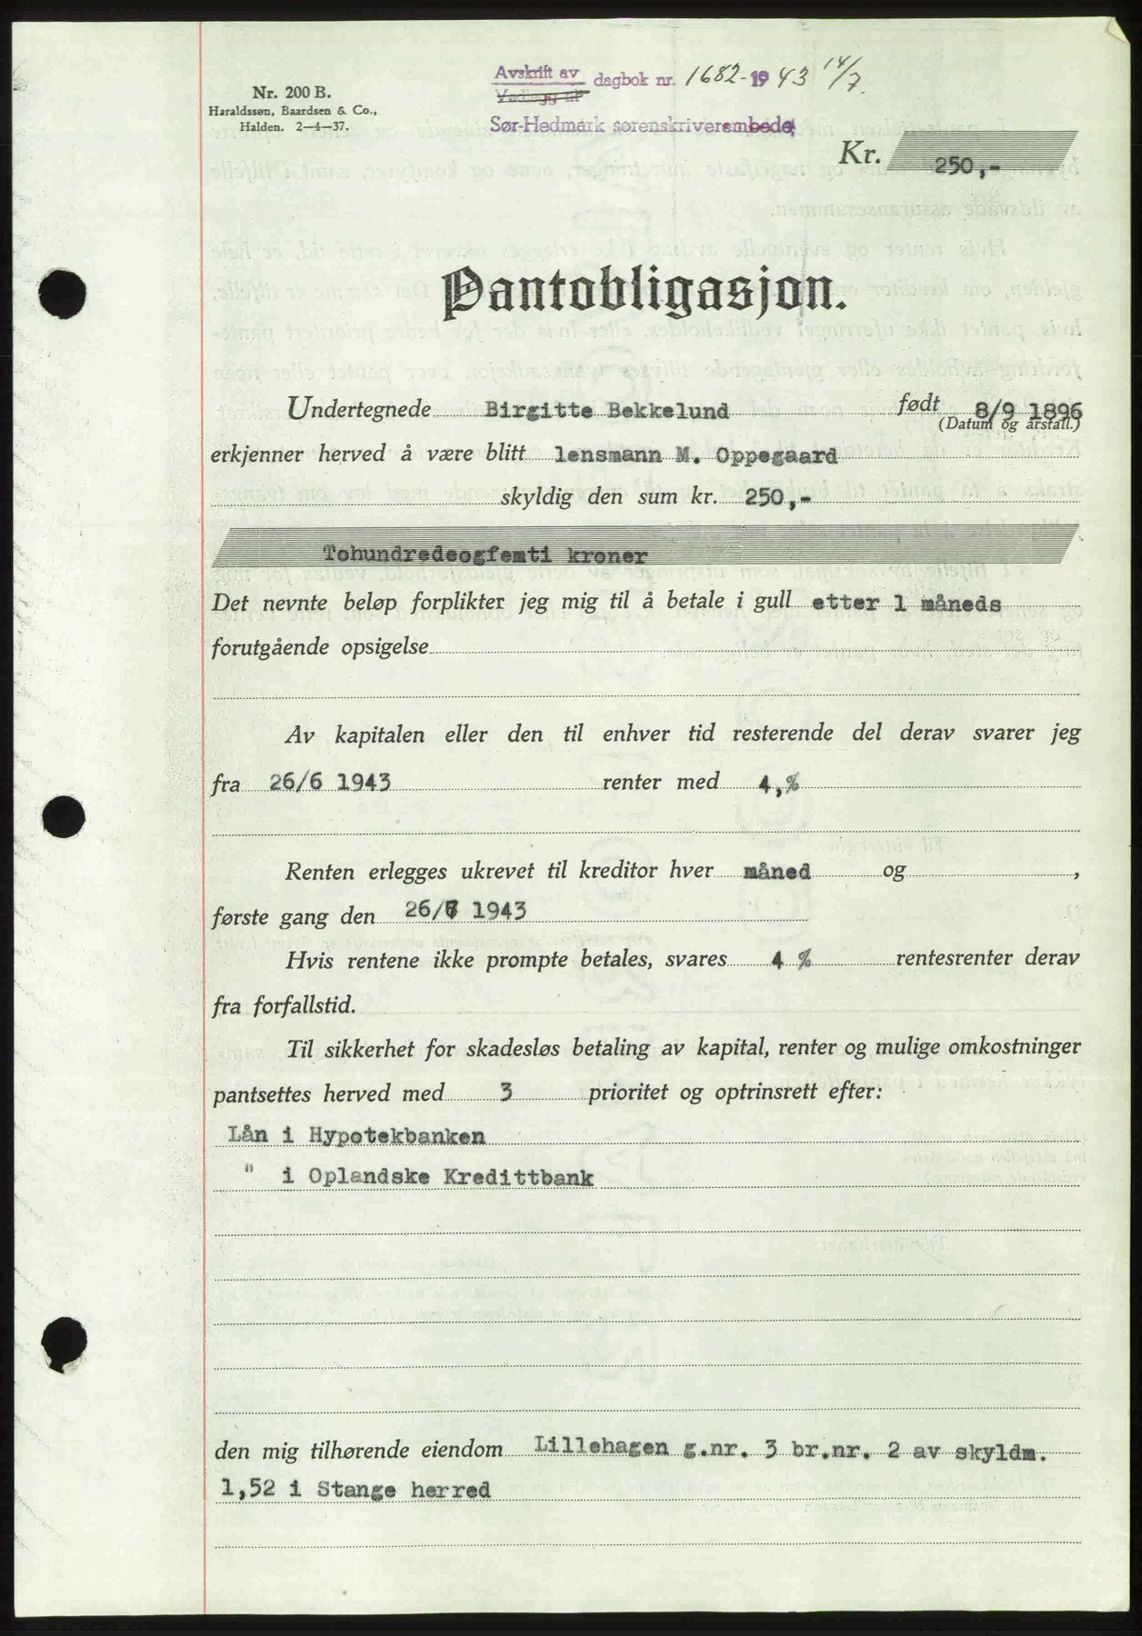 Nr. 200 B.
Haraldssen, Baardsen & Co.,
Halden. 2—4—37.
Avskrift av
Vedlegg til
dagbok nr. 1682-1943 14/7.
Sør-Hedmark sorenskriverembede
Kr. 250,-
Pantobligasjon.
Undertegnede Birgitte Bekkelund født 8/9 1896
(Datum og årstall.)
erkjenner herved å være blitt lensmann M. Oppegaard
skyldig den sum kr. 250,-
Tohundredeogfemti kroner
Det nevnte beløp forplikter jeg mig til å betale i gull etter 1 måneds
forutgående opsigelse
Av kapitalen eller den til enhver tid resterende del derav svarer jeg
fra 26/6 1943 renter med 4,%
Renten erlegges ukrevet til kreditor hver måned og ,
første gang den 26/ 1943
Hvis rentene ikke prompte betales, svares 4 % rentesrenter derav
fra forfallstid.
Til sikkerhet for skadesløs betaling av kapital, renter og mulige omkostninger
pantsettes herved med 3 prioritet og optrinsrett efter:
Lån i Hypotekbanken
" i Oplandske Kredittbank
den mig tilhørende eiendom Lillehagen g.nr. 3 br.nr. 2 av skyldm.
1,52 i Stange herred